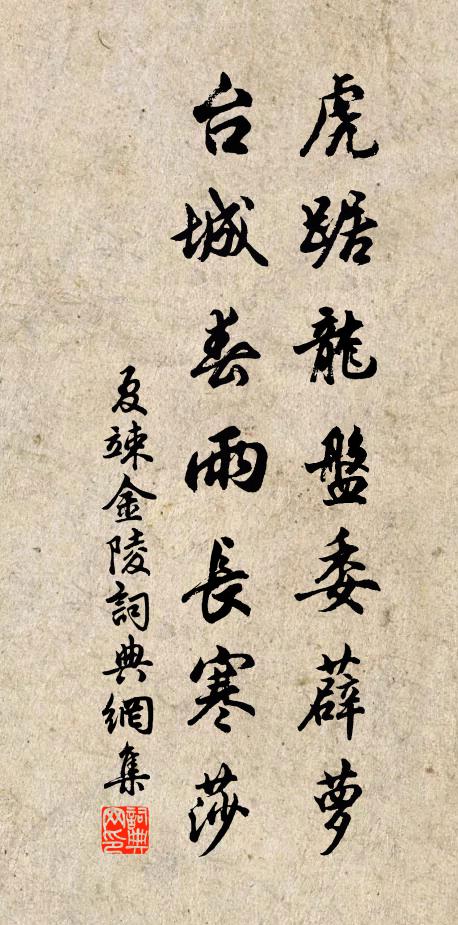 虎踞龍盤委薜萝
台城春雨長寒莎
夏竦金陵詞典網集
詞典
网印